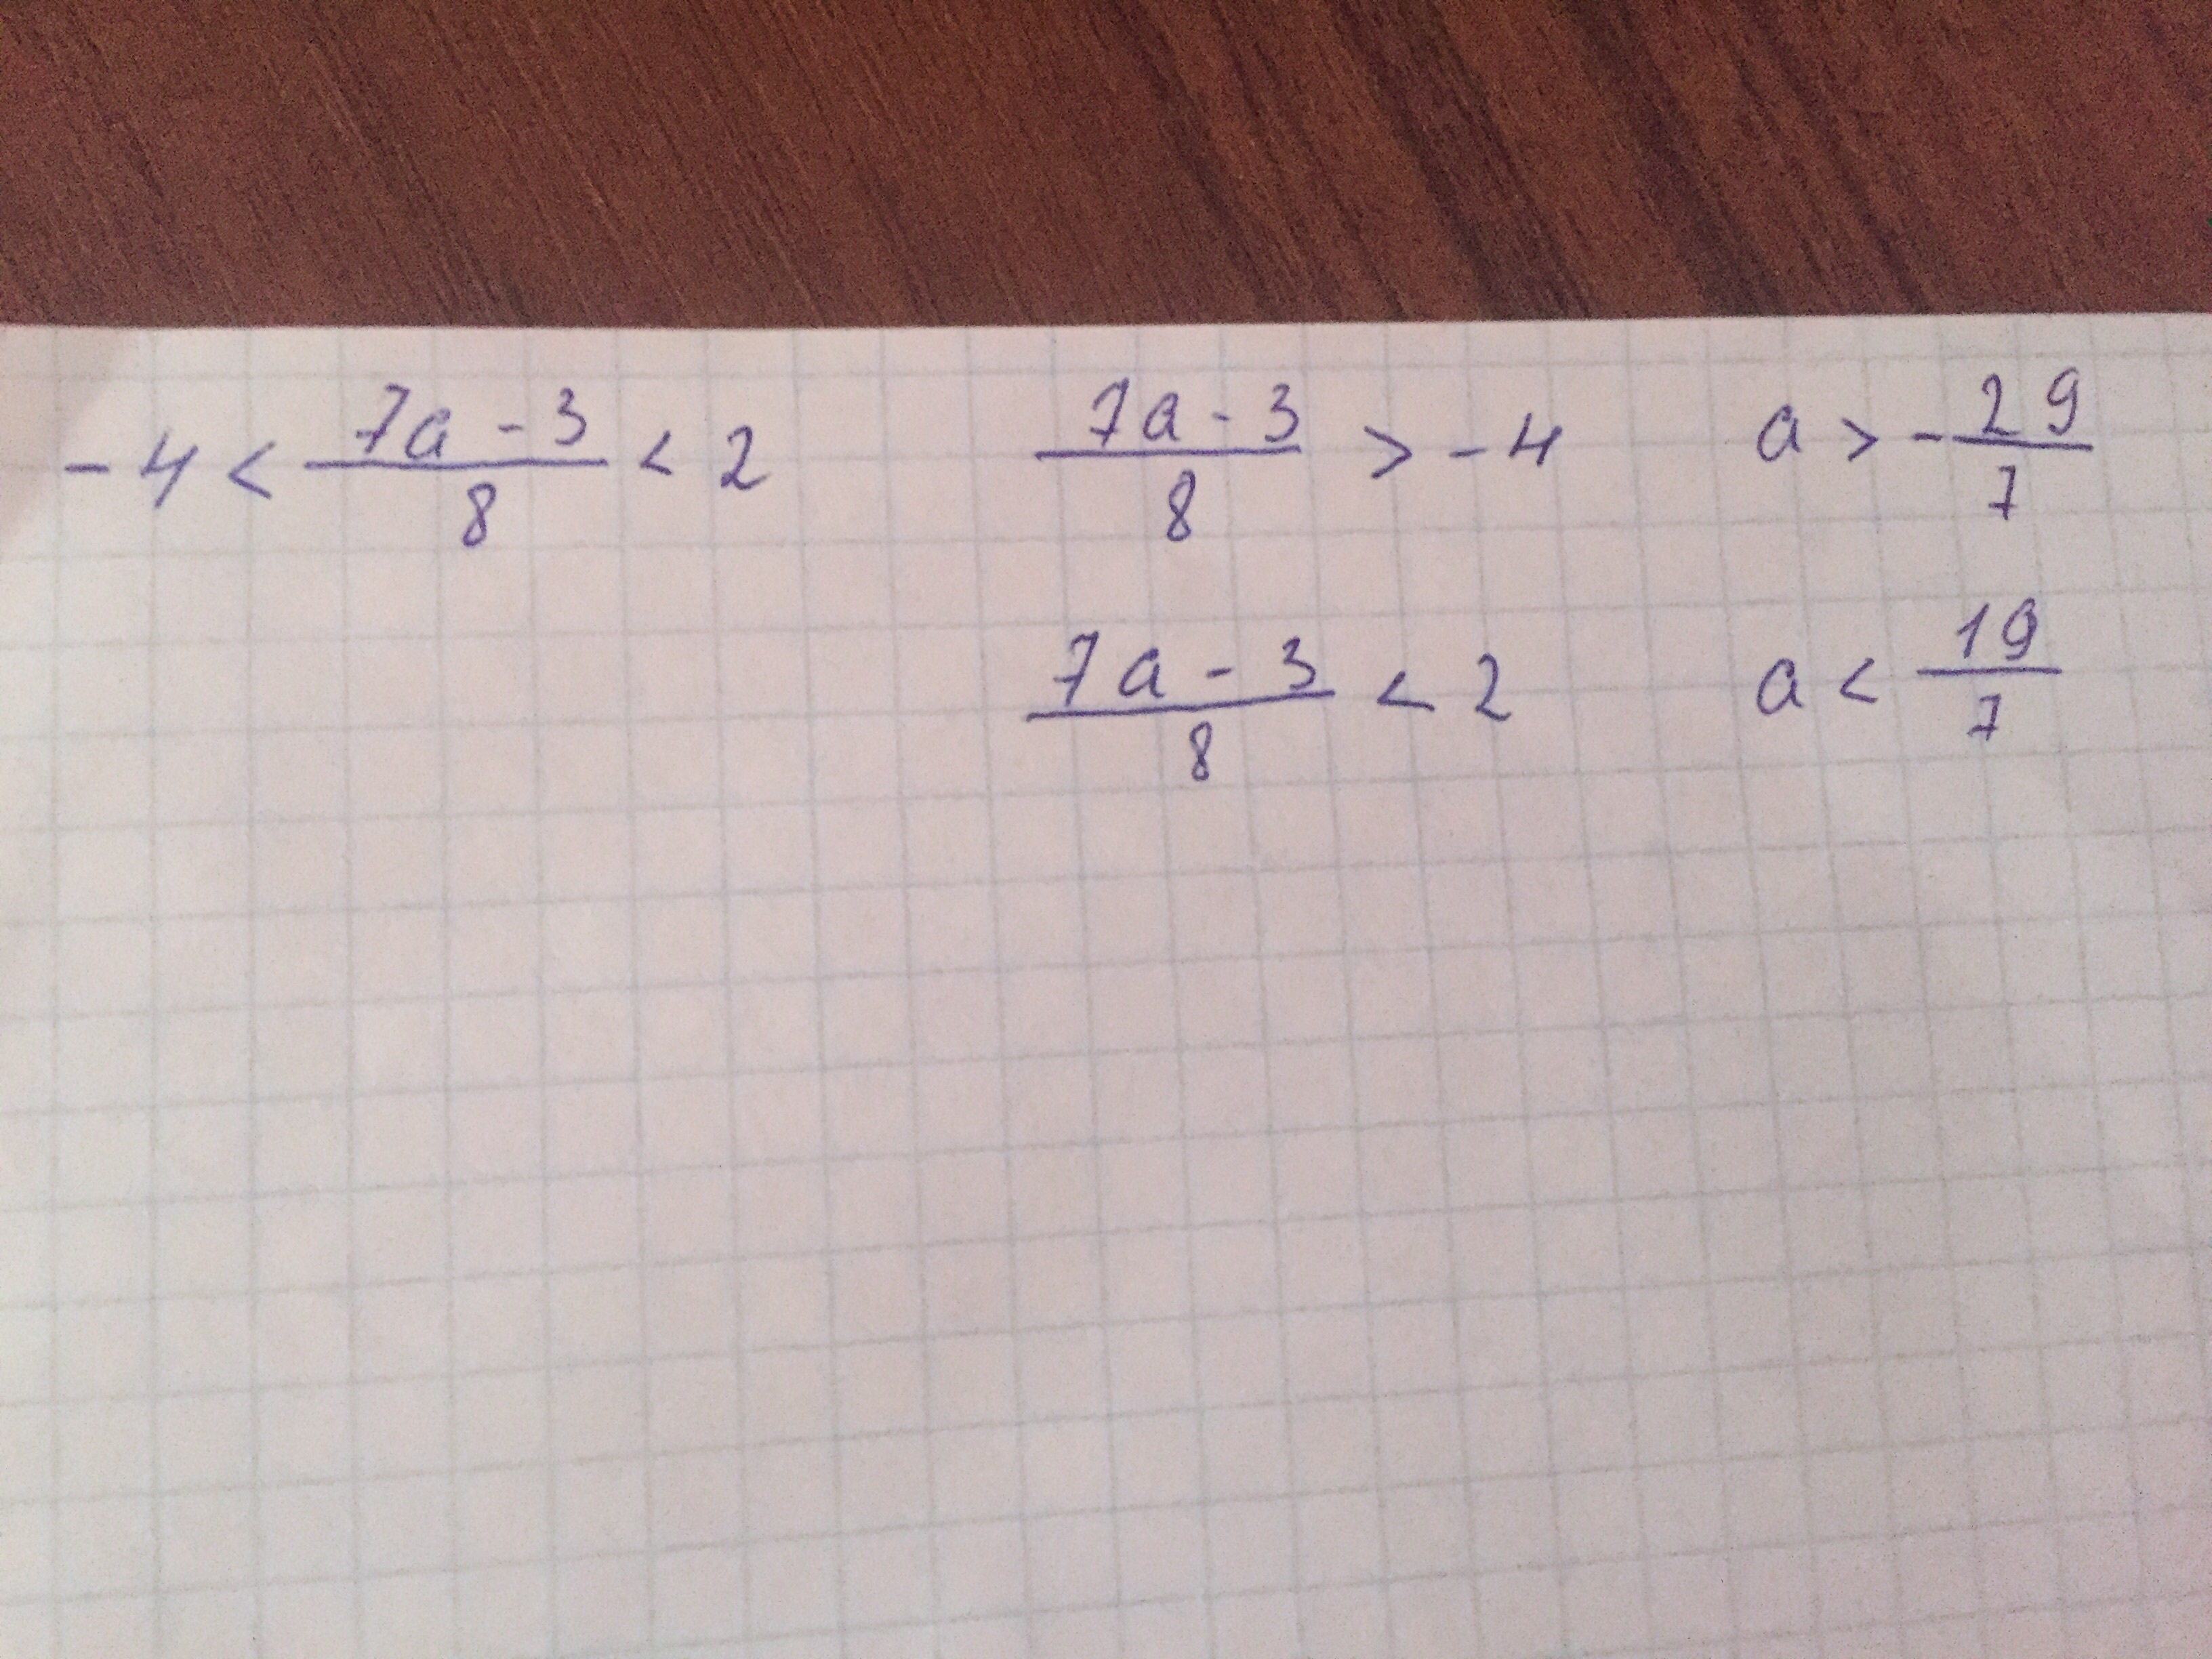 -4 < (7a - 3)/8 < 2    (7a - 3)/8 > -4    a > -29/7
(7a - 3)/8 < 2    a < 19/7